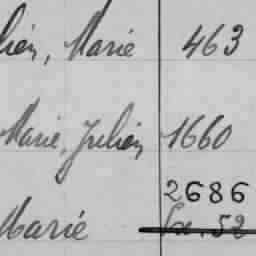 lien, Marie 463
Marie, Julien 1660
2686
Marie